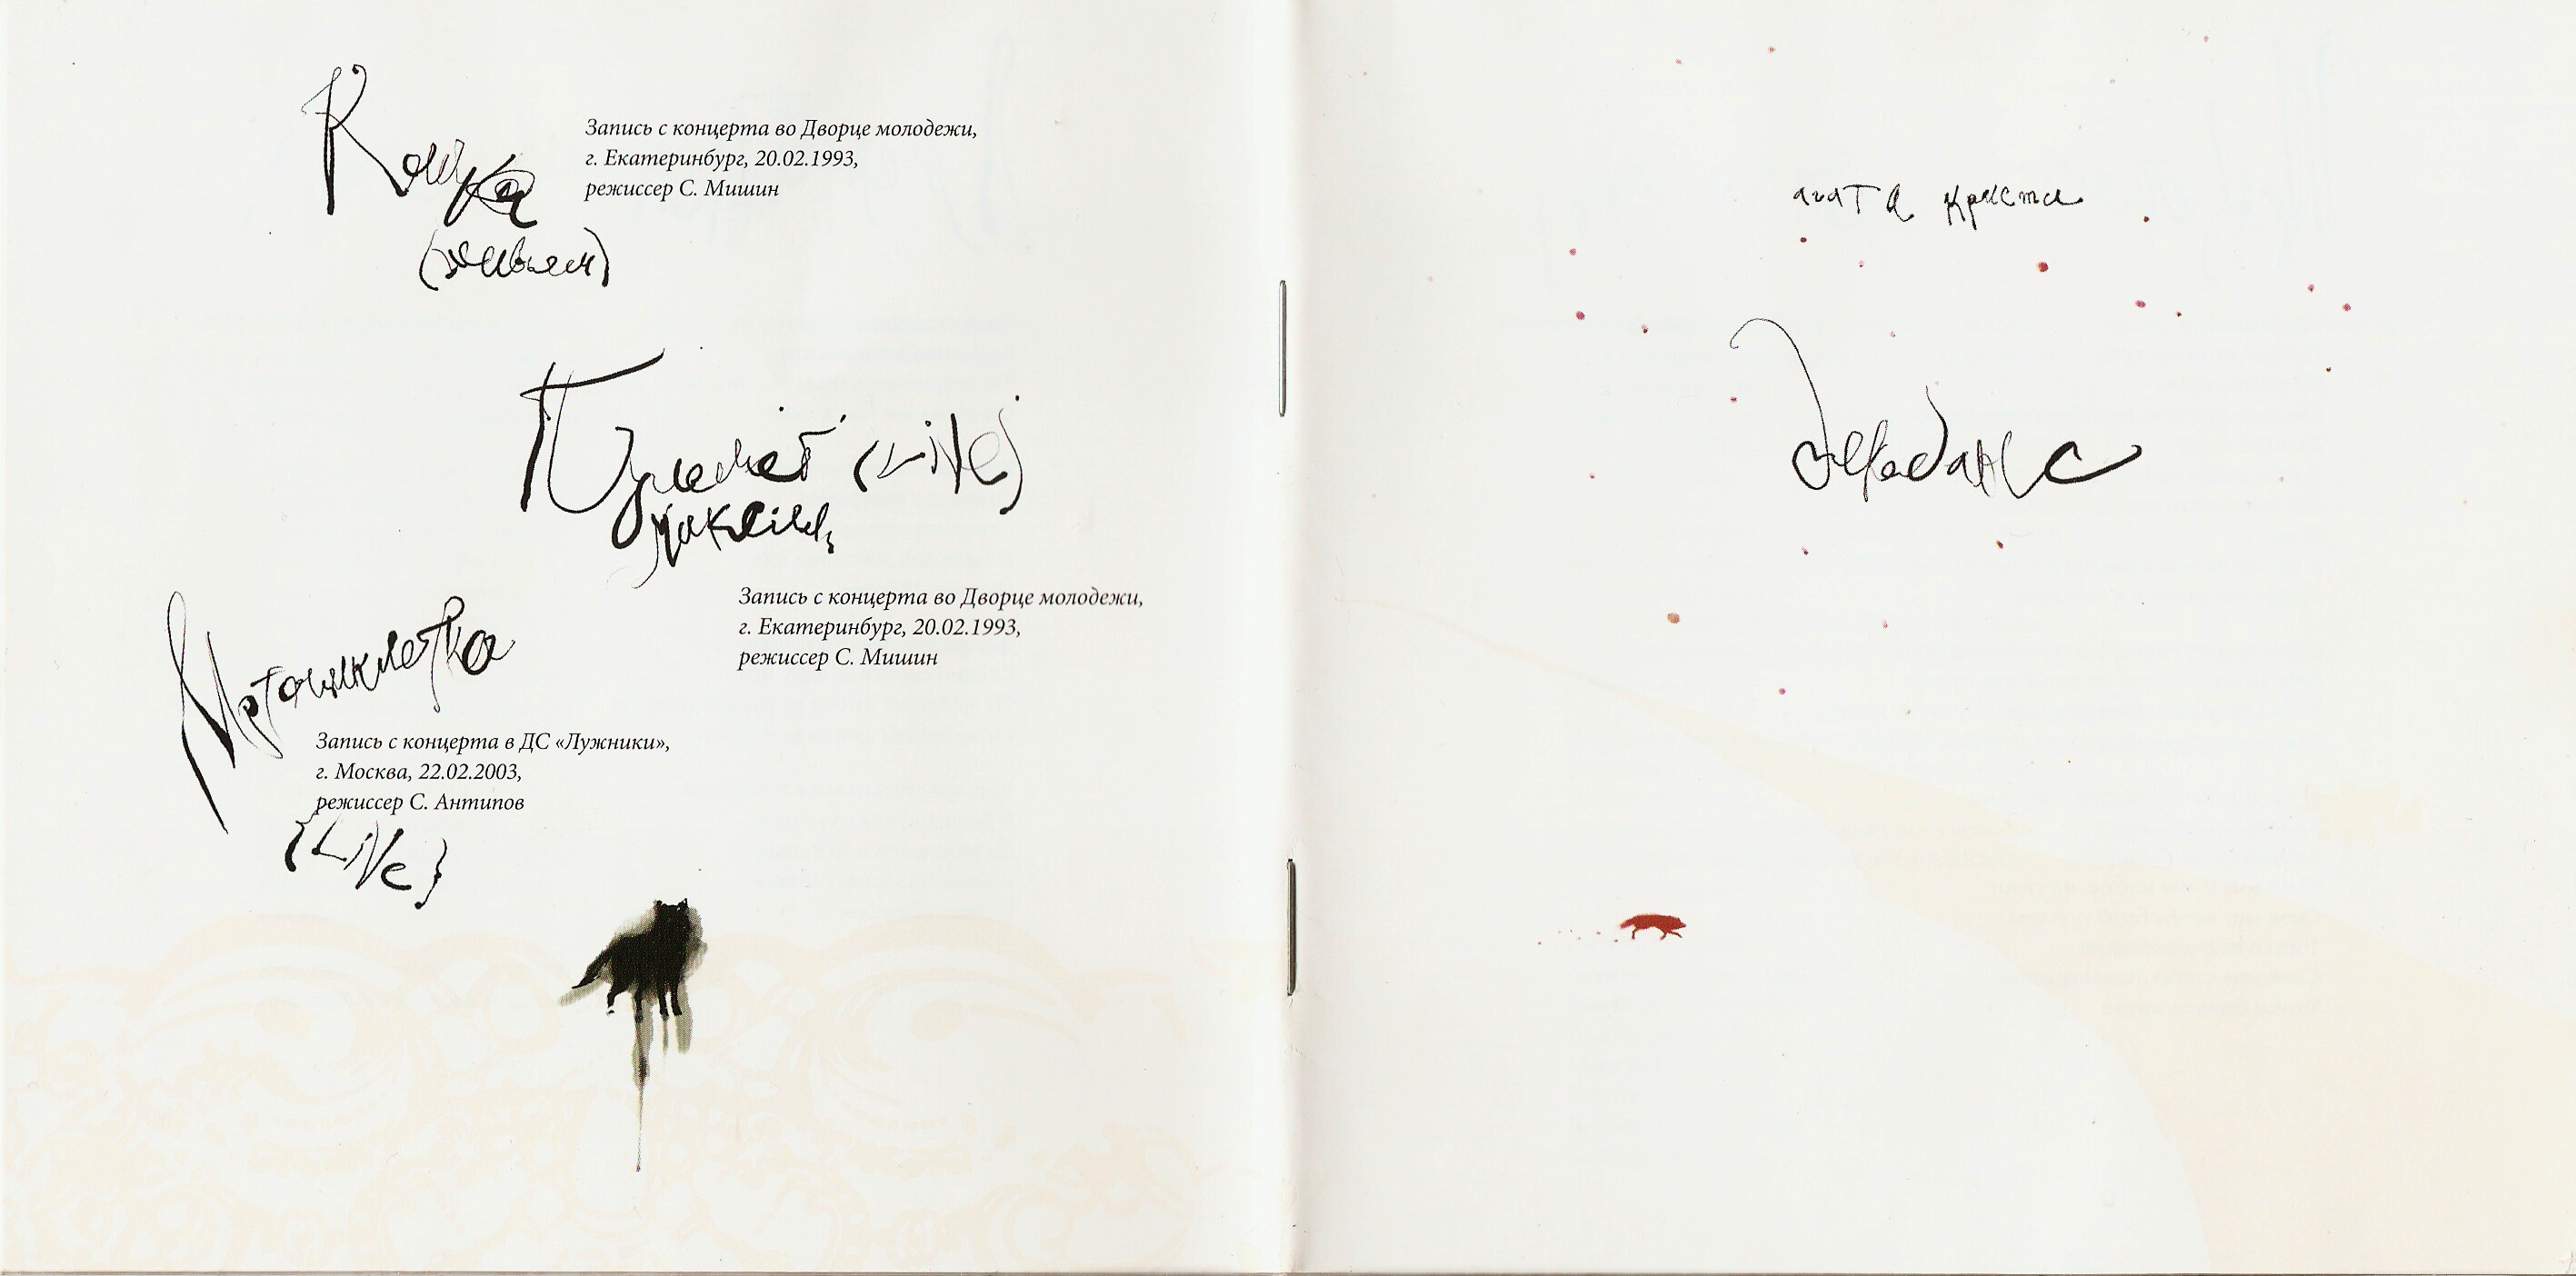 Кошка
Запись с концерта во Дворце молодежи,
г. Екатеринбург, 20.02.1993,
режиссер С. Мишин
(живьем)
Пулемет (Live)
максим
Запись с концерта во Дворце молодежи,
г. Екатеринбург, 20.02.1993,
режиссер С. Мишин
Мотоциклетка
Запись с концерта в ДС «Лужники»,
г. Москва, 22.02.2003,
режиссер С. Антипов
{Live}
агата кристи
Декаданс